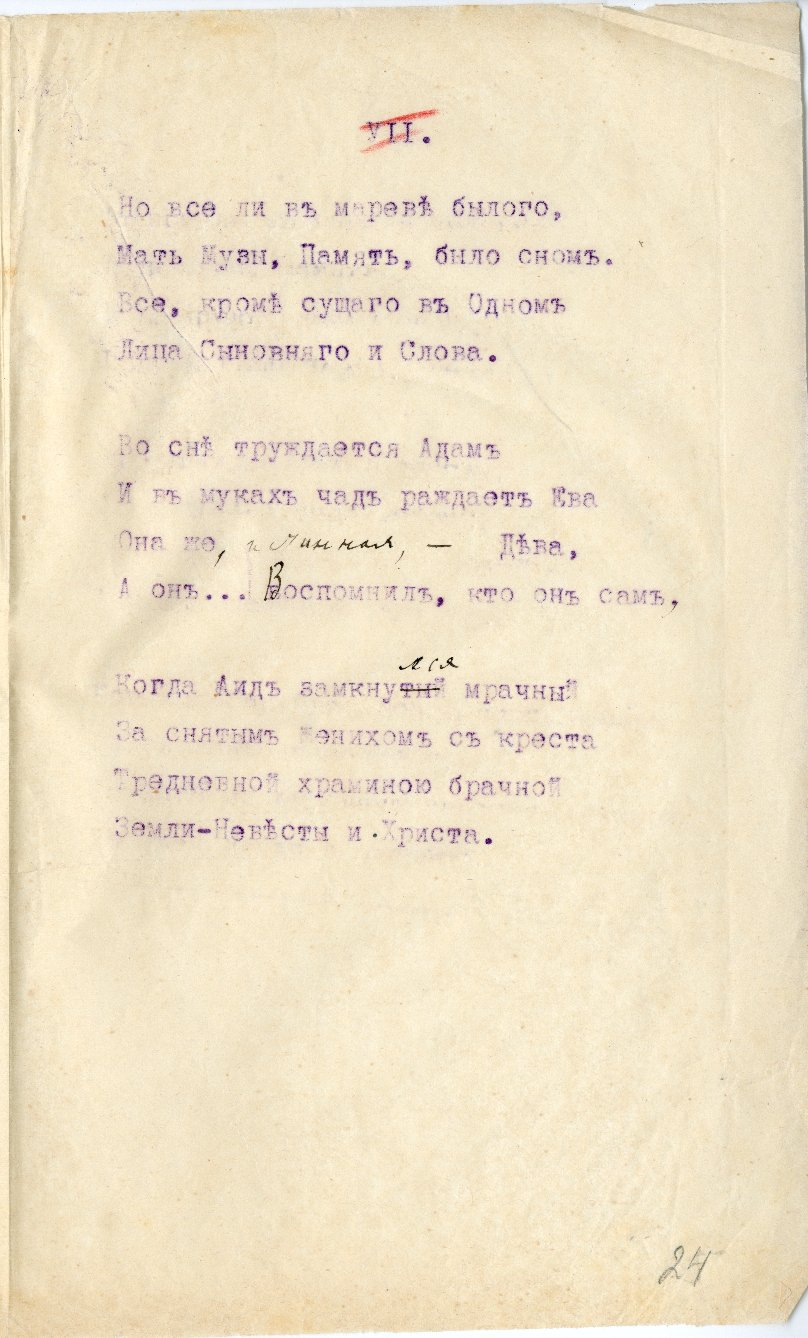 VII.
Но все ли въ маревѣ былого,
Мать Музы, Память, было сномъ.
Все, кромѣ сущаго въ Одномъ
Лица Сыновняго и Слова.
Во снѣ труждается Адамъ
И въ мукахъ чадъ раждаетъ Ева
Она же, истинная, — Дѣва,
А онъ... Воспомнилъ, кто онъ самъ,
лся
Когда Аидъ замкнутый мрачный
За снятымъ Женихомъ съ креста
Тредневной храминою брачной
Земли-Невѣсты и Христа.
24